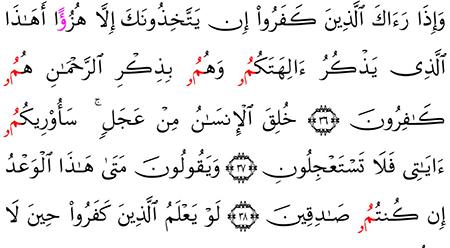 وَإِذَا رَءَاكَ ٱلَّذِينَ كَفَرُوا۟ إِن يَتَّخِذُونَكَ إِلَّا هُزُؤًا أَهَـٰذَا
ٱلَّذِى يَذْكُرُ ءَالِهَتَكُمُۥ وَهُمُۥ بِذِكْرِ ٱلرَّحْمَـٰنِ هُمُۥ
كَـٰفِرُونَ ۝٣٦ خُلِقَ ٱلْإِنسَـٰنُ مِنْ عَجَلٍ ۚ سَأُو۟رِيكُمُۥ
ءَايَـٰتِى فَلَا تَسْتَعْجِلُونِ ۝٣٧ وَيَقُولُونَ مَتَىٰ هَـٰذَا ٱلْوَعْدُ
إِن كُنتُمُۥ صَـٰدِقِينَ ۝٣٨ لَوْ يَعْلَمُ ٱلَّذِينَ كَفَرُوا۟ حِينَ لَا